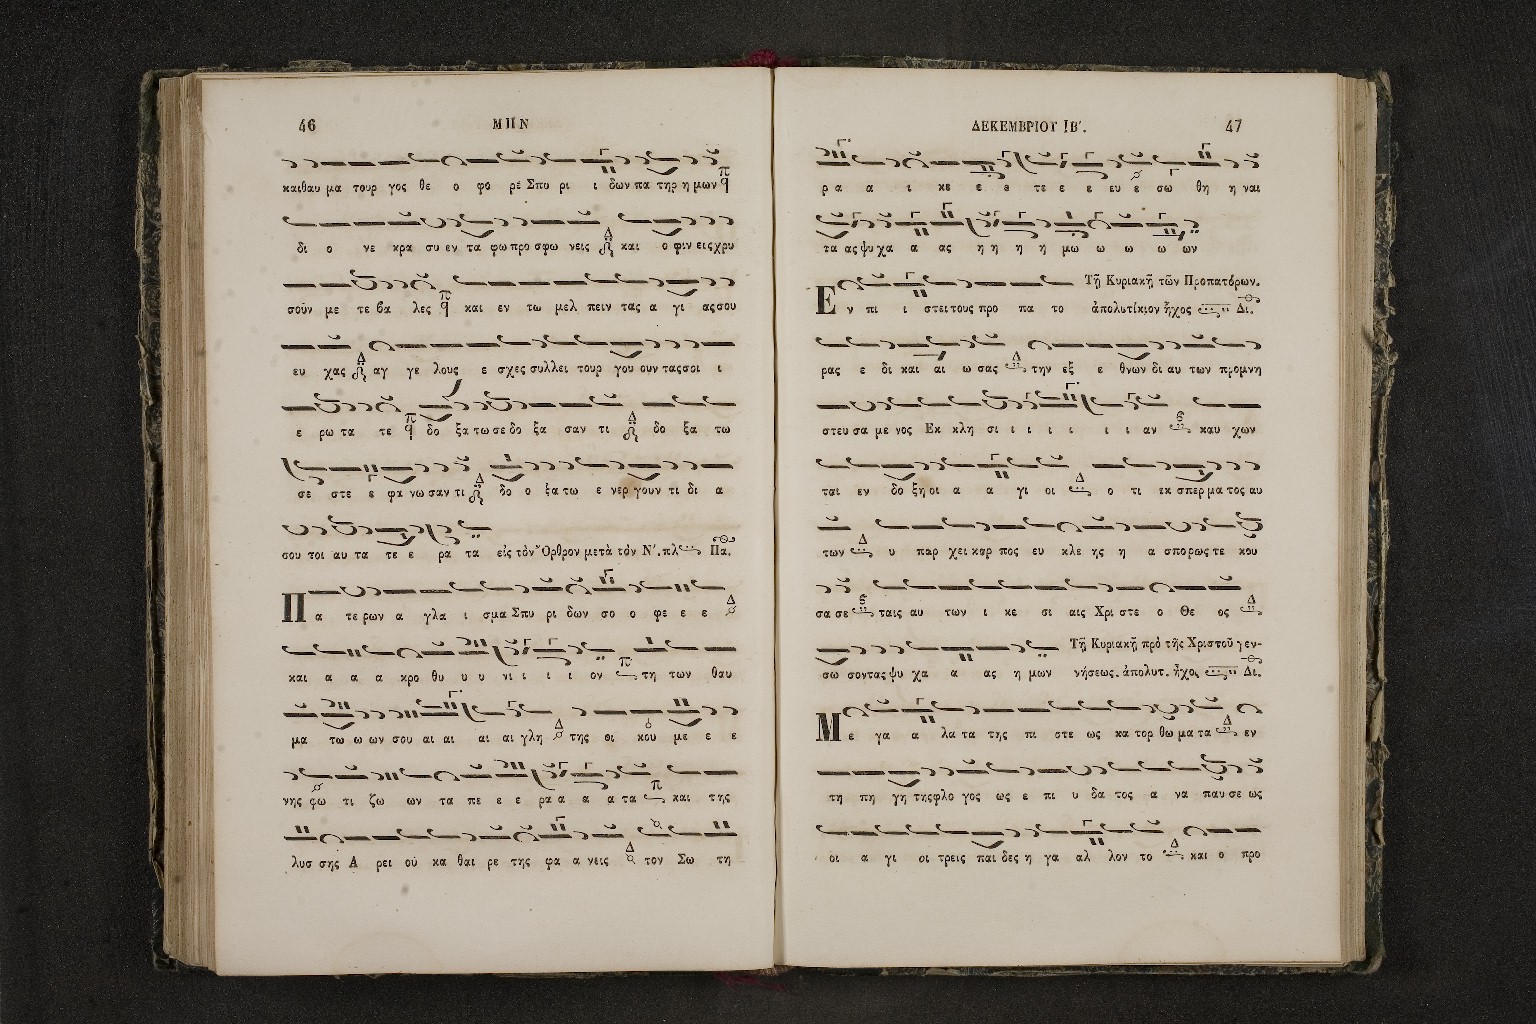 46 ΜΗΝ
και θαυ μα τουρ γος θε ο φο ρε Σπυ ρι ι δων πα τηρ η μων
δι ο νε κρα συ εν τα φω προ σφω νεις και ο φιν εις χρυ
σούν με τε βα λες και εν τω μελ πειν τας α γι ας σου
ευ χας αγ γε λους ε σχες συλλει τουρ γου ουν τας σοι ι
ε ρω τα τε δο ξα τω σε δο ξα σαν τι δο ξα τω
σε στε ε φα νω σαν τι δο ο ξα τω ε νερ γουν τι δι α
σου τοι αυ τα τε ε ρα τα εἰς τὸν Ὄρθρον μετὰ τὸν Ν΄. πλ Πα.
Πα τε ρων α γλα ι σμα Σπυ ρι δων σο ο φε ε ε
και α α α κρο θυ υ υ νι ι ι ι ον τη των θαυ
μα τω ω ων σου αι αι αι αι γλη της οι κου με ε ε
νης φω τι ζω ων τα πε ε ε ρα α α α τα και της
λυσ σης Α ρει ού κα θαι ρε της φα α νεις τον Σω τη
ΔΕΚΕΜΒΡΙΟΥ ΙΒ΄. 47
ρ α α ι κε ε ε τε ε ε ευ ε σω θη η ναι
τα ας ψυ χα α ας η η η η μω ω ω ω ων
Τῇ Κυριακῇ τῶν Προπατόρων.
Εν πι ι στει τους προ πα το ἀπολυτίκιον ἦχος Δι.
ρας ε δι και αι ω σας την εξ ε θνων δι αυ των προμνη
στευ σα με νος Εκ κλη σι ι ι ι ι ι ι αν καυ χων
ται εν δο ξη οι α α γι οι ο τι εκ σπερ μα τος αυ
των υ παρ χει καρ πος ευ κλε ης η α σπορως τε κου
σα σε ταις αυ των ι κε σι αις Χρι στε ο Θε ος
Τῇ Κυριακῇ πρὸ τῆς Χριστοῦ γεν-
σω σον τας ψυ χα α ας η μων νήσεως. ἀπολυτ. ἦχο, Δι.
Με γα α λα τα της πι στε ως κα τορ θω μα τα εν
τη πη γη της φλο γος ως ε πι υ δα τος α να παυ σε ως
οι α γι οι τρεις παι δες η γα αλ λον το και ο προ